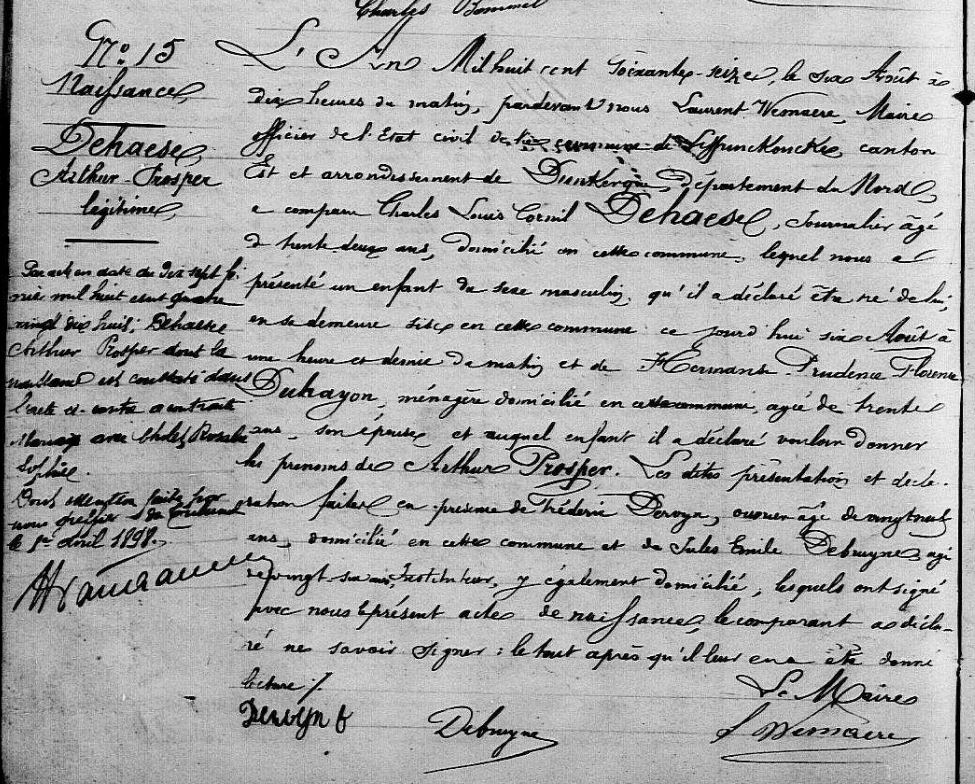 Charles Bommel
N° 15
Naissance
Dehaese
Arthur Prosper
légitime
Par acte en date du dix sept fé
vrier mil huit cent quatre
vingt dix huit, Dehaese
Arthur Prosper dont la
naissance est constatée dans
l'acte ci-contre a contracté
Mariage avec Rosalie
Sophie.
Dont mention faite par
nous greffier du tribunal
le 1er avril 1898.
L'An Mil huit cent soixante-seize, le six Août à
dix heures du matin, pardevant nous Laurent Wemaere, Maire
officier de l'Etat civil de la commune de Leffrinckoucke, canton
Est et arrondissement de Dunkerque, département du Nord,
a comparu Charles Louis Cornil Dehaese, Journalier âgé
de trente deux ans, domicilié en cette commune, lequel nous a
présenté un enfant du sexe masculin, qu'il a déclaré être né de lui,
en sa demeure sise en cette commune ce jourd'hui six Août à
une heure et demie du matin et de Hermans Prudence Florence
Duhayon, ménagère domicilié en cette commune, agée de trente
ans, son épouse et auquel enfant il a déclaré vouloir donner
les prénoms de Arthur Prosper. Les dites présentation et décla-
ration faites en présence de Frédéric Dervyn, ouvrier âgé de vingt neuf
ans, domicilié en cette commune et de Jules Emile Debruyne, agé
de vingt six ans, Instituteur, y également domicilié, lesquels ont signé
avec nous le présent acte de naissance, le comparant a décla-
ré ne savoir signer : le tout après qu'il leur en a été donné
lecture ./.
Le Maire
Dervyn f
Debruyne
L Wemaere